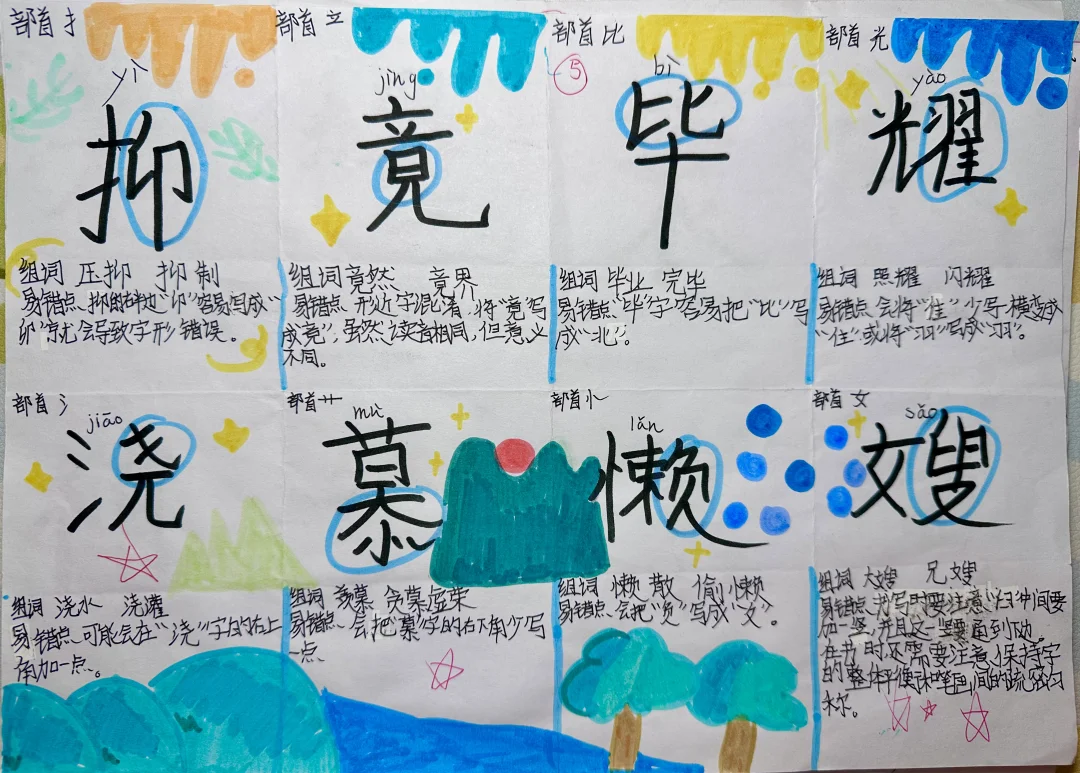 部首 扌
yì
抑
组词 压抑 抑制
易错点、抑的右边"卬"容易写成"
卯"就会导致字形错误。
部首 立
jìng
竟
组词 竟然 竟界
易错点、形近字混淆，将"竟"写
成"竞"，虽然之读音相同，但意义
不同。
部首 比
5
bì
毕
组词 毕业 完毕
易错点、"毕"字容易把"比"写
成"北"。
部首 光
yào
耀
组词 照耀 闪耀
易错点、会将"隹"少写一横变成
"住"或将"羽"写成"习"。
部首 氵
jiāo
浇
组词 浇水 浇灌
易错点、可能会在"浇"字的右上
角加一点。
部首 艹
mù
慕
组词 羡慕 贪慕虚荣
易错点、会把"慕"字的右下角少写
一点
部首 小
lǎn
懒
组词 懒散 偷懒
易错点、会把"负"写成"攵"。
部首 女
sǎo
嫂
组词 大嫂 兄嫂
易错点、书写时要注意"臼"中间要
加一竖，并且这一竖要直到
在书 时还需要注意保持字
的整体平衡和笔画间的疏密匀
称。